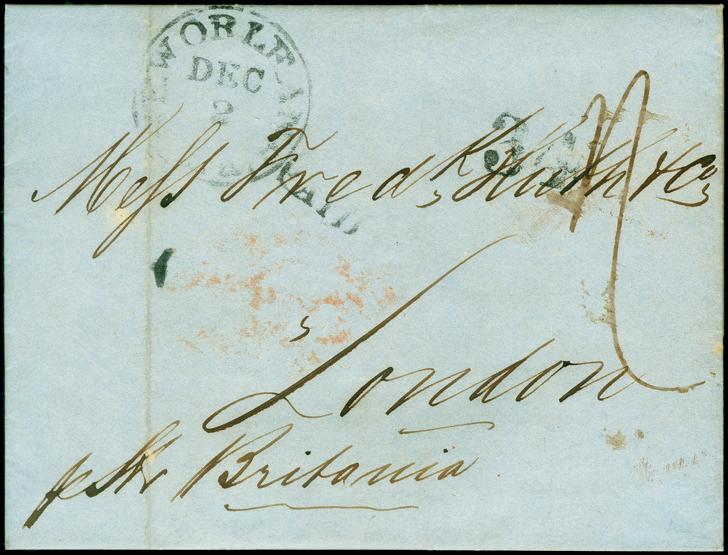 NEW ORLEANS
DEC
2
PAID
34
Messs Fredk Huth & Co,
London
p Str Britania